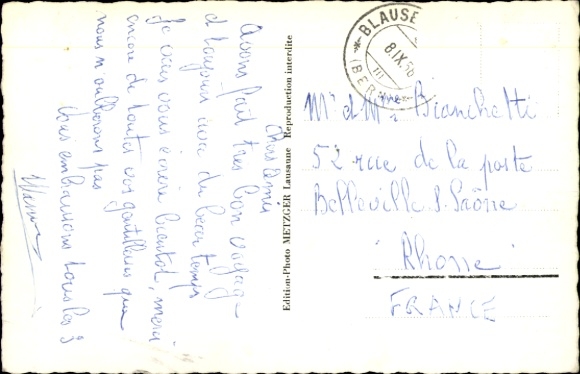 Chers Amis
Avons fait très bon voyage
et toujours avec du beau temps
Je vais vous écrire bientôt, merci
encore de toutes vos gentillesses que
nous n'oublierons pas
Vous embrassons tous les 3
Edition-Photo METZGER Lausanne Reproduction interdite
BLAUSE
8.IX.56
(BER
Mr et Mme Bianchetti
52 rue de la poste
Belleville s. Saône
Rhone
FRANCE